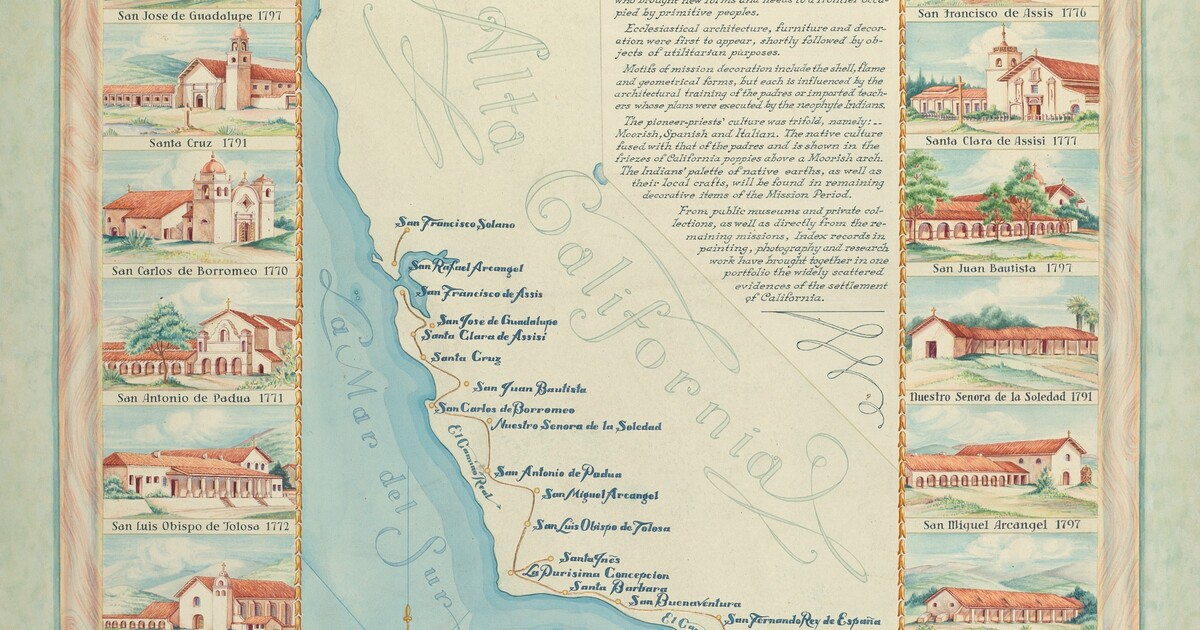 San Jose de Guadalupe 1797
Santa Cruz 1791
San Carlos de Borromeo 1770
San Antonio de Padua 1771
San Luis Obispo de Tolosa 1772
Alta
California
La Mar del Sur
who brought new forms and needs to a frontier occu-
pied by primitive peoples.
Ecclesiastical architecture, furniture and decor-
ation were first to appear, shortly followed by ob-
jects of utilitarian purposes.
Motifs of mission decoration include the shell, flame
and geometrical forms, but each is influenced by the
architectural training of the padres or imported teach-
ers whose plans were executed by the neophyte Indians.
The pioneer-priests' culture was trifold, namely:--
Moorish, Spanish and Italian. The native culture
fused with that of the padres and is shown in the
friezes of California poppies above a Moorish arch.
The Indians' palette of native earths, as well as
their local crafts, will be found in remaining
decorative items of the Mission Period.
From public museums and private col-
lections, as well as directly from the re-
maining missions, Index records in
painting, photography and research
work have brought together in one
portfolio the widely scattered
evidences of the settlement
of California.
San Francisco Solano
San Rafael Arcangel
San Francisco de Assis
San Jose de Guadalupe
Santa Clara de Assisi
Santa Cruz
San Juan Bautista
San Carlos de Borromeo
Nuestro Senora de la Soledad
El Camino Real
San Antonio de Padua
San Miguel Arcangel
San Luis Obispo de Tolosa
Santa Ines
La Purisima Concepcion
Santa Barbara
San Buenaventura
San Fernando Rey de España
San Francisco de Assis 1776
Santa Clara de Assisi 1777
San Juan Bautista 1797
Nuestro Senora de la Soledad 1791
San Miguel Arcangel 1797